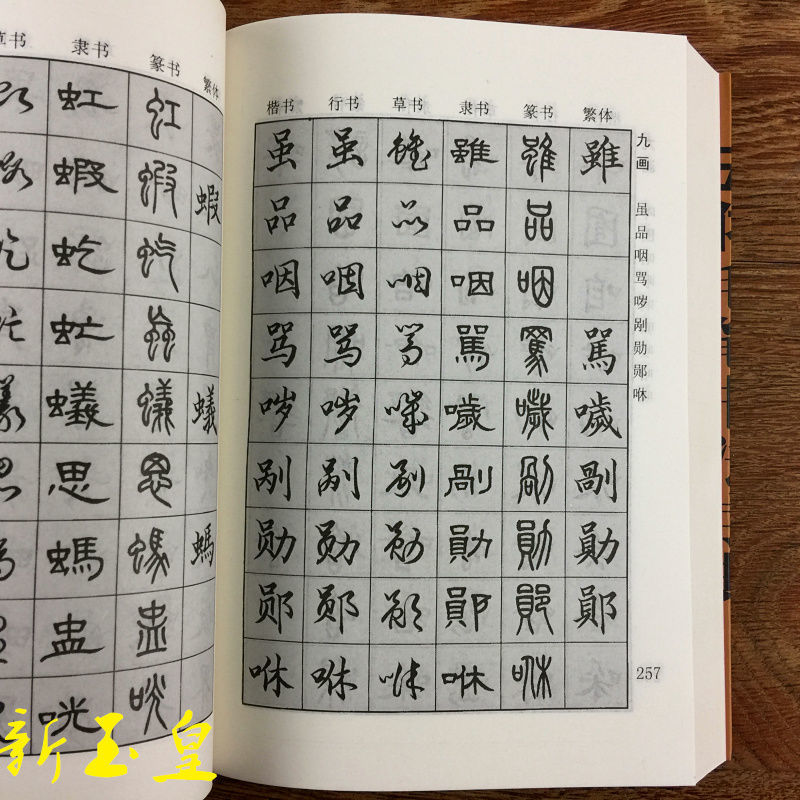 草书 隶书 篆书 繁体
虹 虹
蝦 蝦 蝦
虼 虼
虻 虻
蟻 蟻 蟻
思 思
螞 螞 螞
盅 盅
咣 咣
楷书 行书 草书 隶书 篆书 繁体
虽 虽 雖 雖 雖 雖
品 品 品 品 品
咽 咽 咽 咽 咽
骂 骂 駡 駡 駡 駡
哕 哕 噦 噦 噦 噦
剐 剐 剮 剮 剮 剮
勋 勋 勛 勛 勛 勛
郧 郧 鄖 鄖 鄖 鄖
咻 咻 咻 咻 咻
九画
虽品咽骂哕剐勋郧咻
257
新玉皇